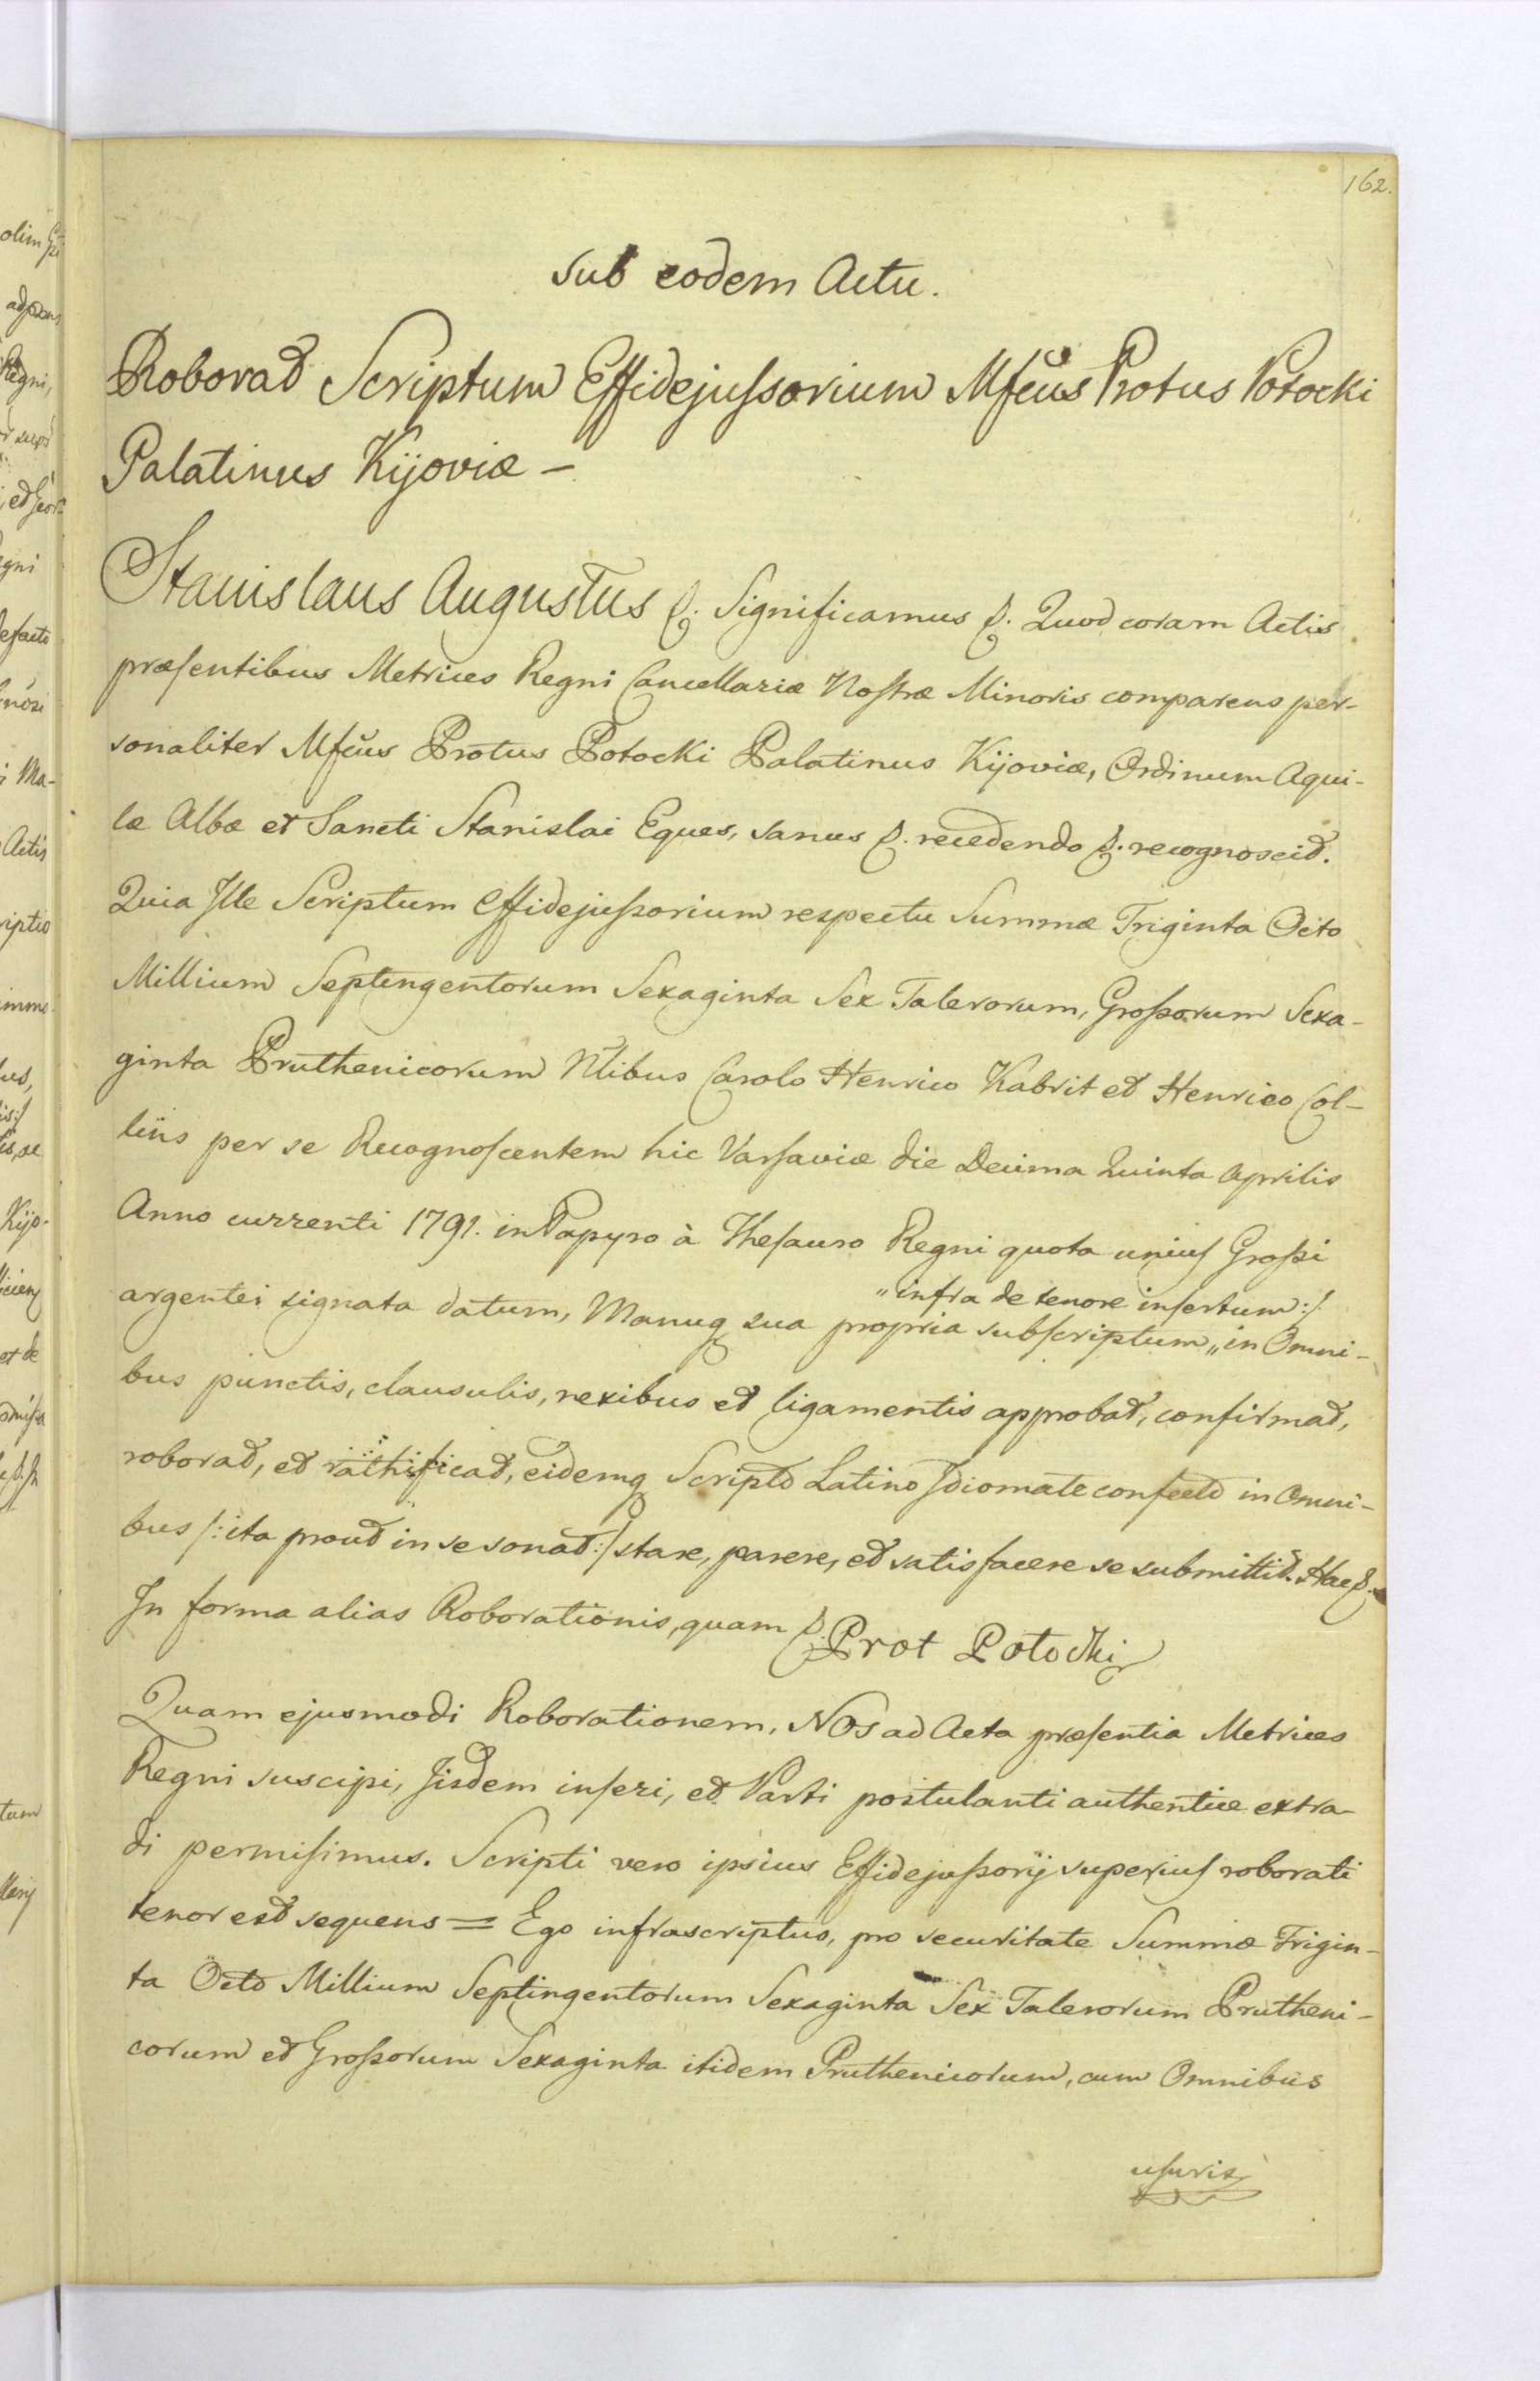 162.
Sub eodem Actu.
Roborat Scriptum Effidejussorium Mfcus Protus Potocki
Palatinus Kijoviæ –
Stanislaus Augustus &. Significamus &. Quod coram Actis
præsentibus Metrices Regni Cancellariæ Nostræ Minoris comparens per-
sonaliter Mfcus Protus Potocki Palatinus Kijoviæ, Ordinum Aqui-
læ Albæ et Sancti Stanislai Eques, sanus &. recedendo &. recognoscit.
Quia Ille Scriptum Effidejussorium respectu Summæ Triginta Octo
Millium Septengentorum Sexaginta Sex Talerorum, Grossorum Sexa-
ginta Pruthenicorum Nlibus Carolo Henrico Kabrit et Henrico Col-
liis per se Recognoscentem hic Varsaviæ die Decima Quinta Aprilis
Anno currenti 1791. in Papyro à Thesauro Regni quota unius Grossi
„infra de tenore insertum:/
argentei signata datum, Manuq sua propria subscriptum„ in Omni-
bus punctis, clausulis, nexibus et ligamentis approbat, confirmat,
roborat, et rathificat, eidemq Scripto Latino Idiomate confecto in Omni-
bus /:ita prout in se sonat:/ stare, parere, et satisfacere se submittit. Hac &.
In forma alias Roborationis, quam &. Prot Potocki
Quam ejusmodi Roborationem, NOS ad Acta præsentia Metrices
Regni suscipi, Iisdem inseri, et Parti postulanti authentice extra-
di permisimus. Scripti vero ipsius Effidejussorij superius roborati
tenor est sequens = Ego infrascriptus, pro securitate Summæ Trigin-
ta Octo Millium Septingentorum Sexaginta Sex Talerorum Prutheni-
corum et Grossorum Sexaginta itidem Pruthenicorum, cum Omnibus
usuris